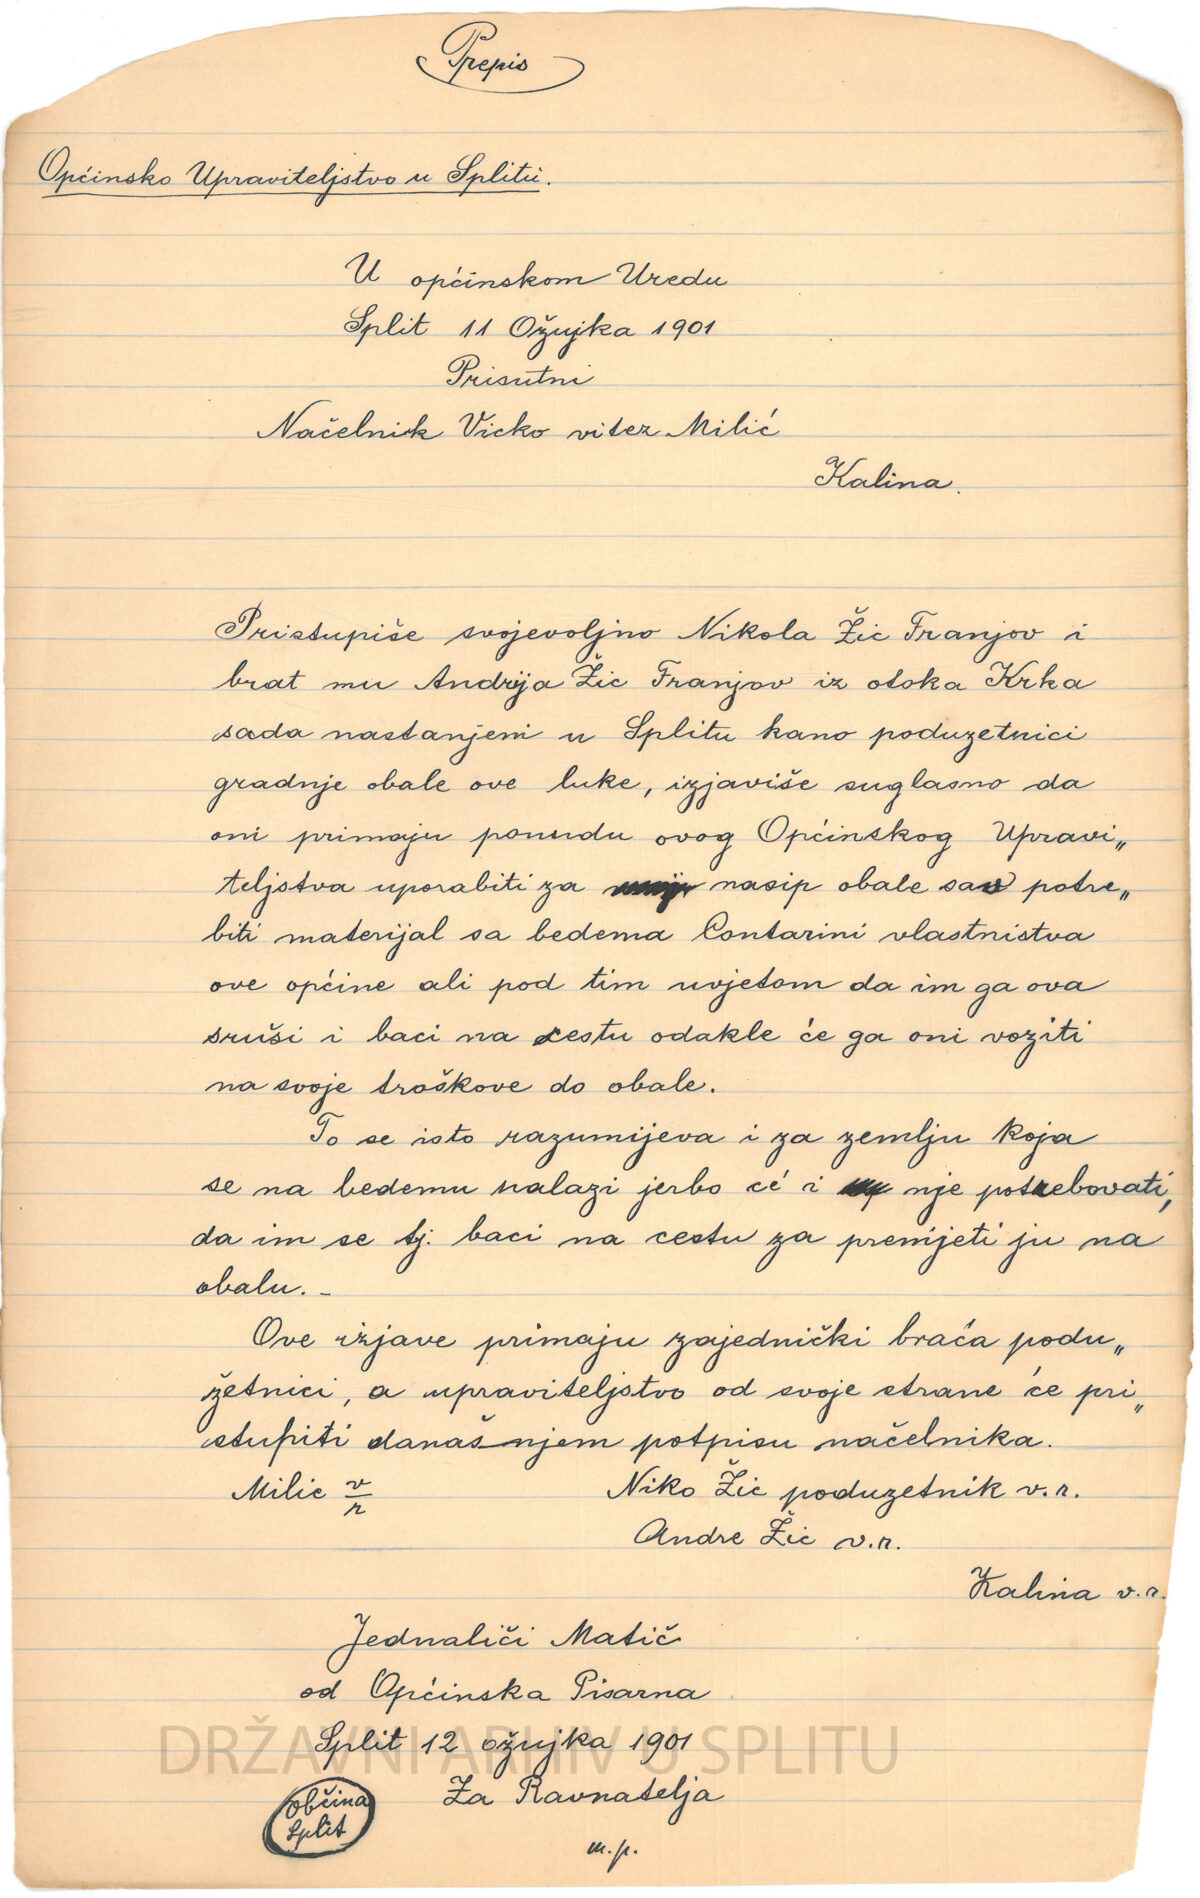 Prepis
Općinsko Upraviteljstvo u Splitu.
U općinskom Uredu
Split 11 Ožujka 1901
Prisutni
Načelnik Vicko vitez Milić
Kalina.
Pristupiše svojevoljno Nikola Žic Franjov i
brat mu Andrija Žic Franjov iz otoka Krka
sada nastanjeni u Splitu kano poduzetnici
gradnje obale ove luke, izjaviše suglasno da
oni primaju ponudu ovog Općinskog Upravi„
teljstva uporabiti za nasip obale sav potre„
biti materijal sa bedema Contarini vlastnistva
ove općine ali pod tim uvjetom da im ga ova
sruši i baci na cestu odakle će ga oni voziti
na svoje troškove do obale.
To se isto razumijeva i za zemlju koja
se na bedemu nalazi jerbo će i nje potrebovati,
da im se tj. baci na cestu za prenijeti ju na
obalu. –
Ove izjave primaju zajednički braća podu„
zetnici, a upraviteljstvo od svoje strane će pri„
stupiti današnjem potpisu načelnika.
Milic v/r Niko Žic poduzetnik v.r.
Andre Žic v.r.
Kalina v.r.
Jednaliči Matič
od Općinska Pisarna
Split 12 ožujka 1901
DRŽAVNI ARHIV U SPLITU
Za Ravnatelja
Občina
Split
m.p.